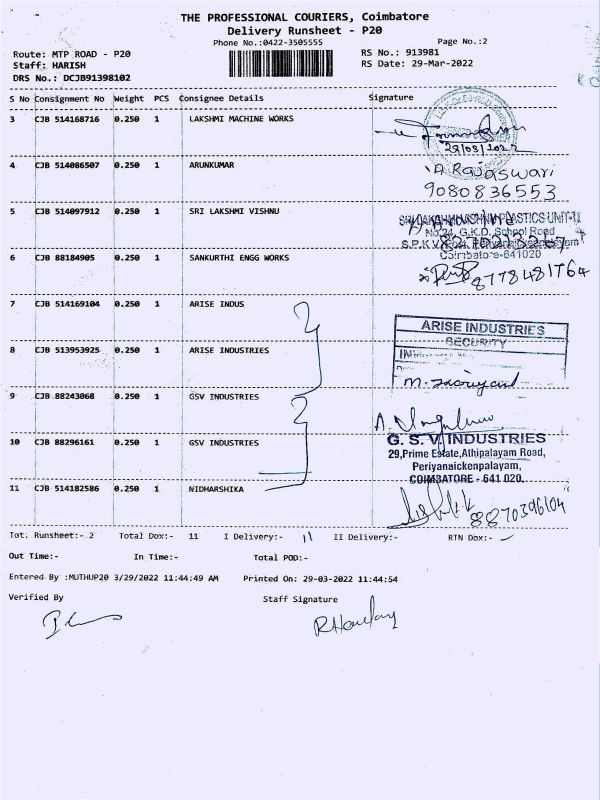 THE PROFESSIONAL COURIERS, Coimbatore
Delivery Runsheet - P20
Phone No.:0422-3505555
Page No.:2
Route: MTP ROAD - P20
RS No.: 913981
Staff: HARISH
RS Date: 29-Mar-2022
DRS No.: DCJB91398102
S No Consignment No Weight PCS Consignee Details Signature
3 CJB 514168716 0.250 1 LAKSHMI MACHINE WORKS
29/03/2022
4 CJB 514086507 0.250 1 ARUNKUMAR
A Rajaswari
9080836553
5 CJB 514097912 0.250 1 SRI LAKSHMI VISHNU
SRI LAKSHMI VISHNU PLASTICS UNIT-II
No.24, G.K.D. School Road
Coimbatore-641020
6 CJB 88184905 0.250 1 SANKURTHI ENGG WORKS
8778481764
7 CJB 514169104 0.250 1 ARISE INDUS
2
ARISE INDUSTRIES
SECURITY
8 CJB 513953925 0.250 1 ARISE INDUSTRIES
9 CJB 88243068 0.250 1 GSV INDUSTRIES
2
10 CJB 88296161 0.250 1 GSV INDUSTRIES
G. S. V. INDUSTRIES
29,Prime Estate,Athipalayam Road,
Periyanaickenpalayam,
COIMBATORE - 641 020.
11 CJB 514182586 0.250 1 NIDHARSHIKA
8870396104
Tot: Runsheet:- 2 Total Dox:- 11 I Delivery:- 11 II Delivery:- RTN Dox:-
Out Time:- In Time:- Total POD:-
Entered By :MUTHUP20 3/29/2022 11:44:49 AM Printed On: 29-03-2022 11:44:54
Verified By Staff Signature